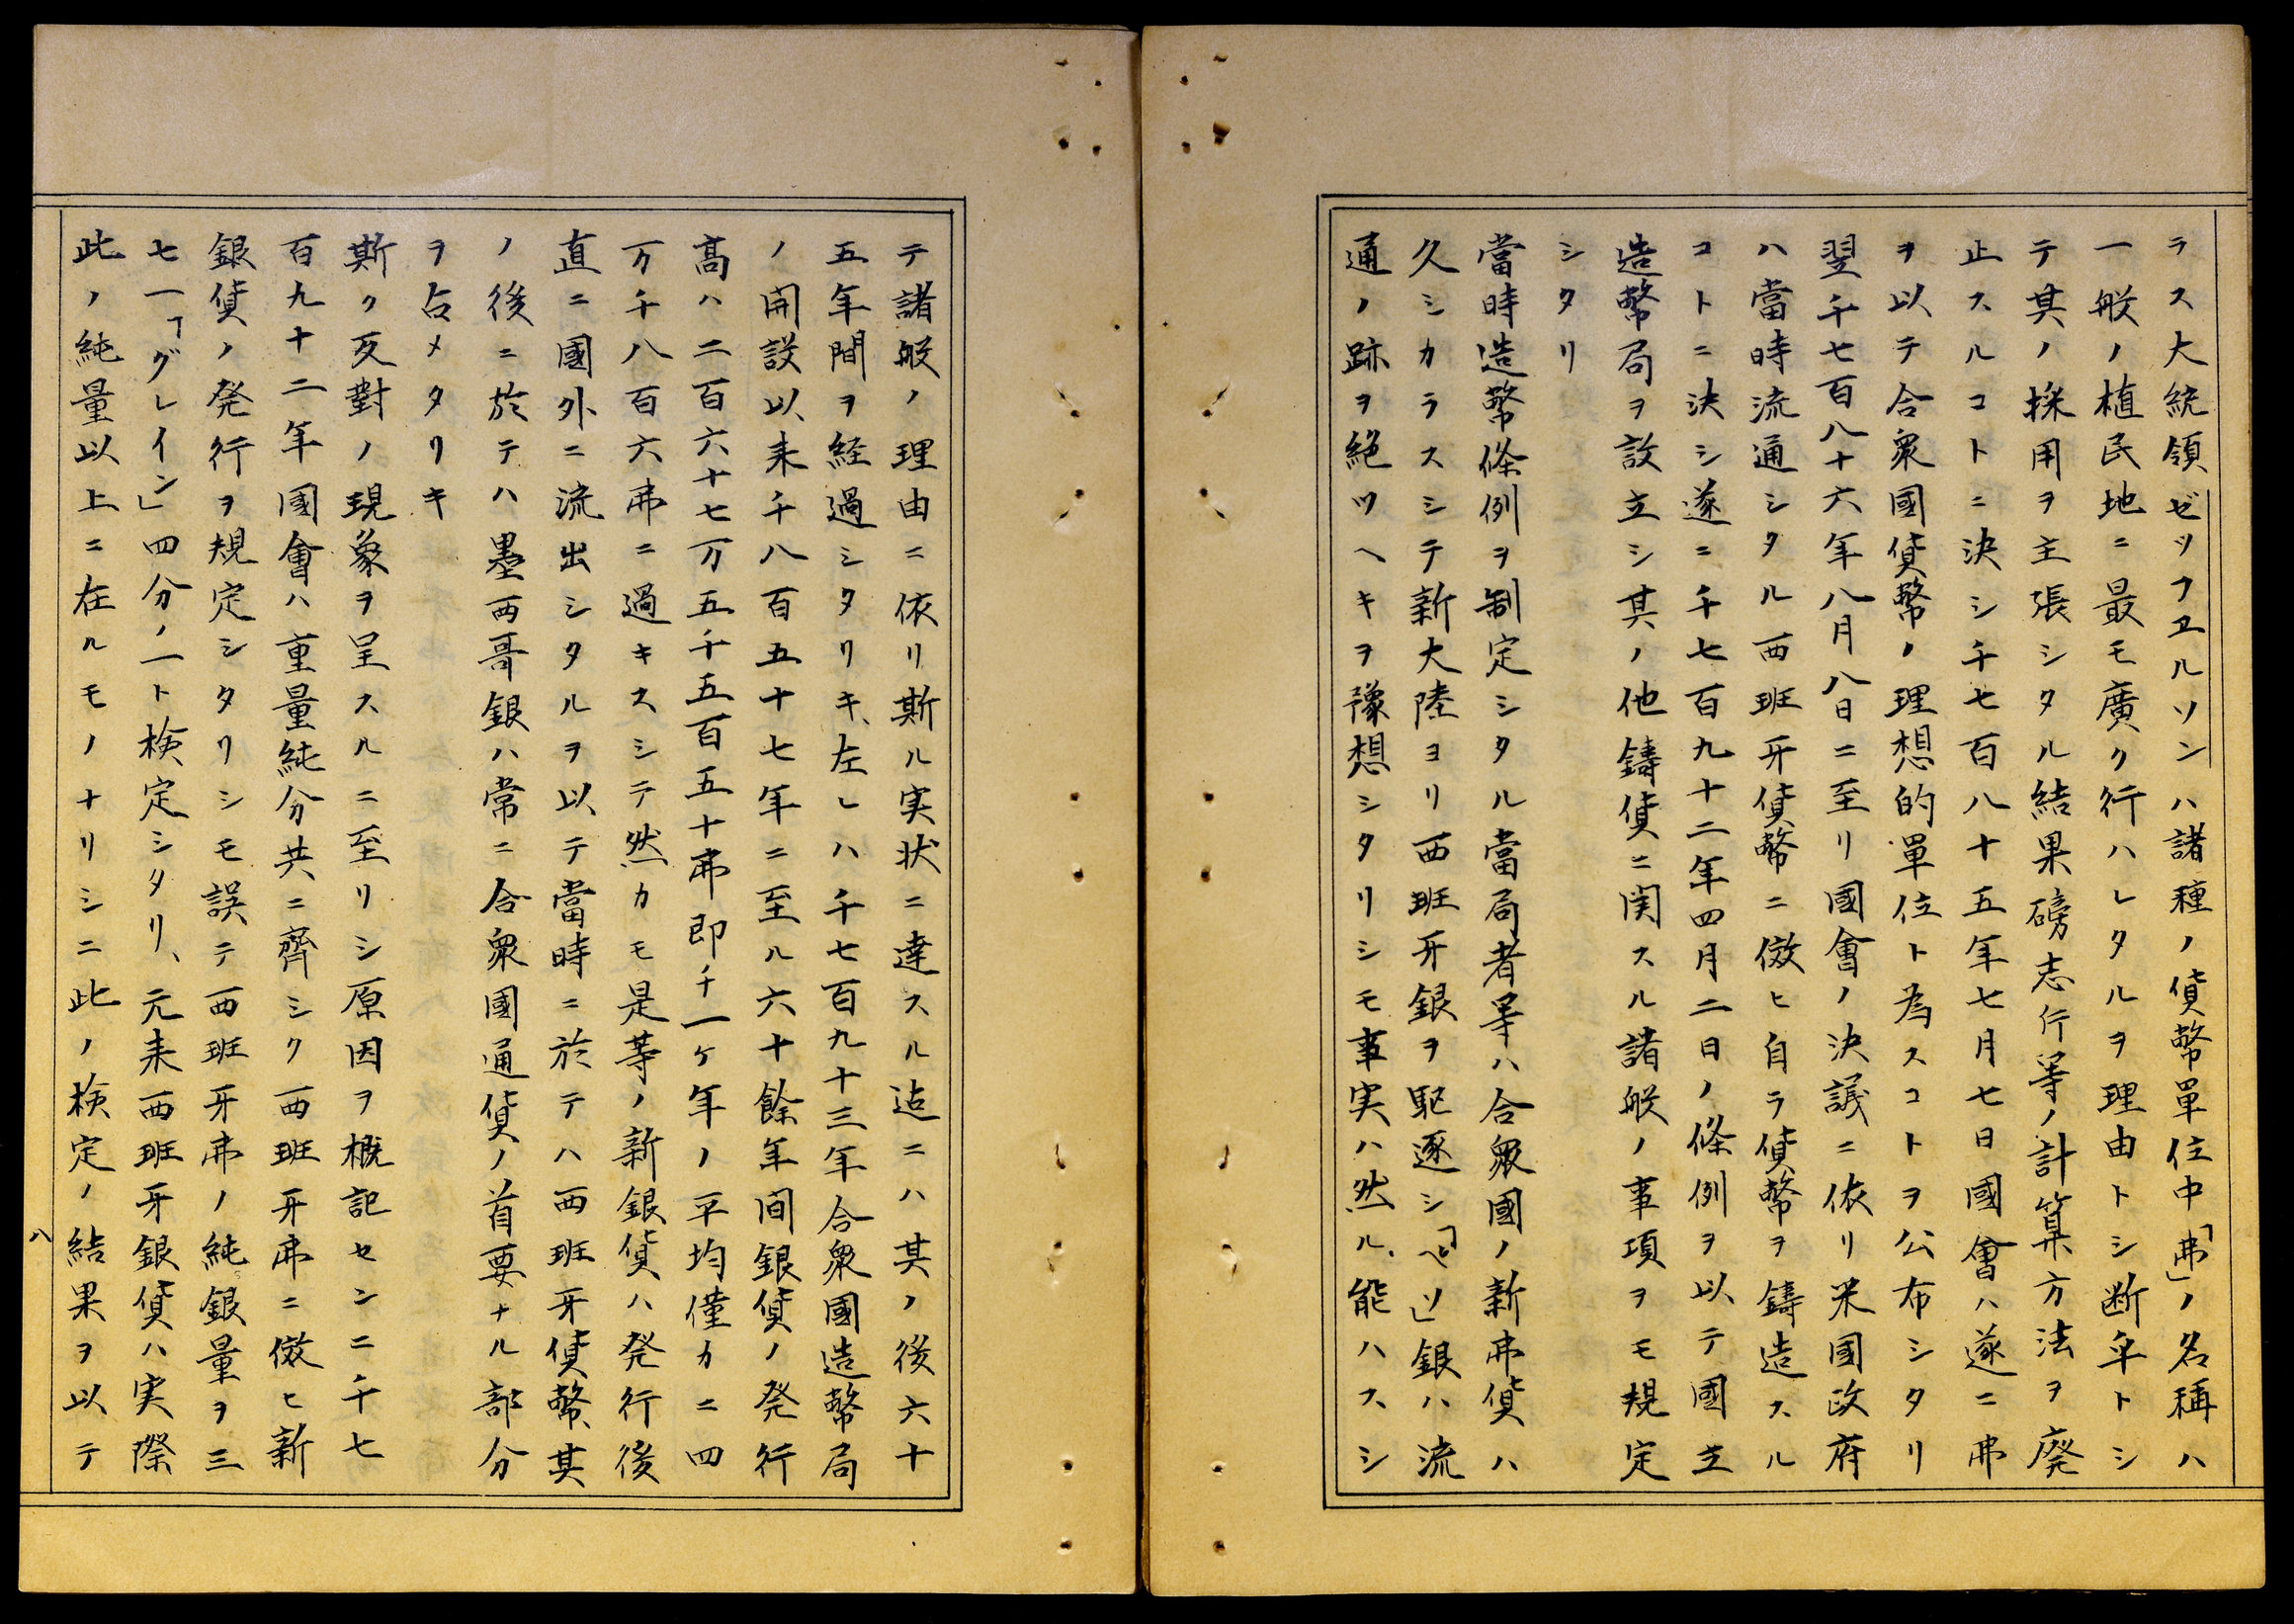 ラス大統領ゼッフヱルソンハ諸種ノ貨幣單位中「弗」ノ名稱ハ
一般ノ植民地ニ最モ廣ク行ハレタルヲ理由トシ断乎トシ
テ其ノ採用ヲ主張シタル結果磅志行等ノ計算方法ヲ廃
止スルコトニ決シ千七百八十五年七月七日國會ハ遂ニ弗
ヲ以テ合衆國貨幣ノ理想的單位ト為スコトヲ公布シタリ
翌千七百八十六年八月八日ニ至リ國會ノ決議ニ依リ米國政府
ハ當時流通シタル西班牙貨幣ニ倣ヒ自ラ貨幣ヲ鑄造スル
コトニ決シ遂ニ千七百九十二年四月二日ノ條例ヲ以テ國立
造幣局ヲ設立シ其ノ他鑄貨ニ関スル諸般ノ事項ヲモ規定
シタリ
當時造幣條例ヲ制定シタル當局者等ハ合衆國ノ新弗貨ハ
久シカラスシテ新大陸ヨリ西班牙銀ヲ駆逐シ「ペソ」銀ハ流
通ノ跡ヲ絶ツヘキヲ豫想シタリシモ事実ハ然ル能ハスシ
テ諸般ノ理由ニ依リ斯ル実状ニ達スル迠ニハ其ノ後六十
五年間ヲ経過シタリキ、左レハ千七百九十三年合衆國造幣局
ノ開設以来千八百五十七年ニ至ル六十餘年间銀貨ノ発行
高ハ二百六十七万五千五百五十弗即チ一ヶ年ノ平均僅カニ四
万千八百六弗ニ過キスシテ然カモ是等ノ新銀貨ハ発行後
直ニ國外ニ流出シタルヲ以テ當時ニ於テハ西班牙貨幣、其
ノ後ニ於テハ墨西哥銀ハ常ニ合衆國通貨ノ首要ナル部分
ヲ占メタリキ
斯ク反對ノ現象ヲ呈スルニ至リシ原因ヲ概記センニ千七
百九十二年國會ハ重量純分共ニ齊シク西班牙弗ニ倣ヒ新
銀貨ノ発行ヲ規定シタリシモ誤テ西班牙弗ノ純銀量ヲ三
七一「グレイン」四分ノ一ト検定シタリ、元来西班牙銀貨ハ実際
此ノ純量以上ニ在ルモノナリシニ此ノ検定ノ結果ヲ以テ
八